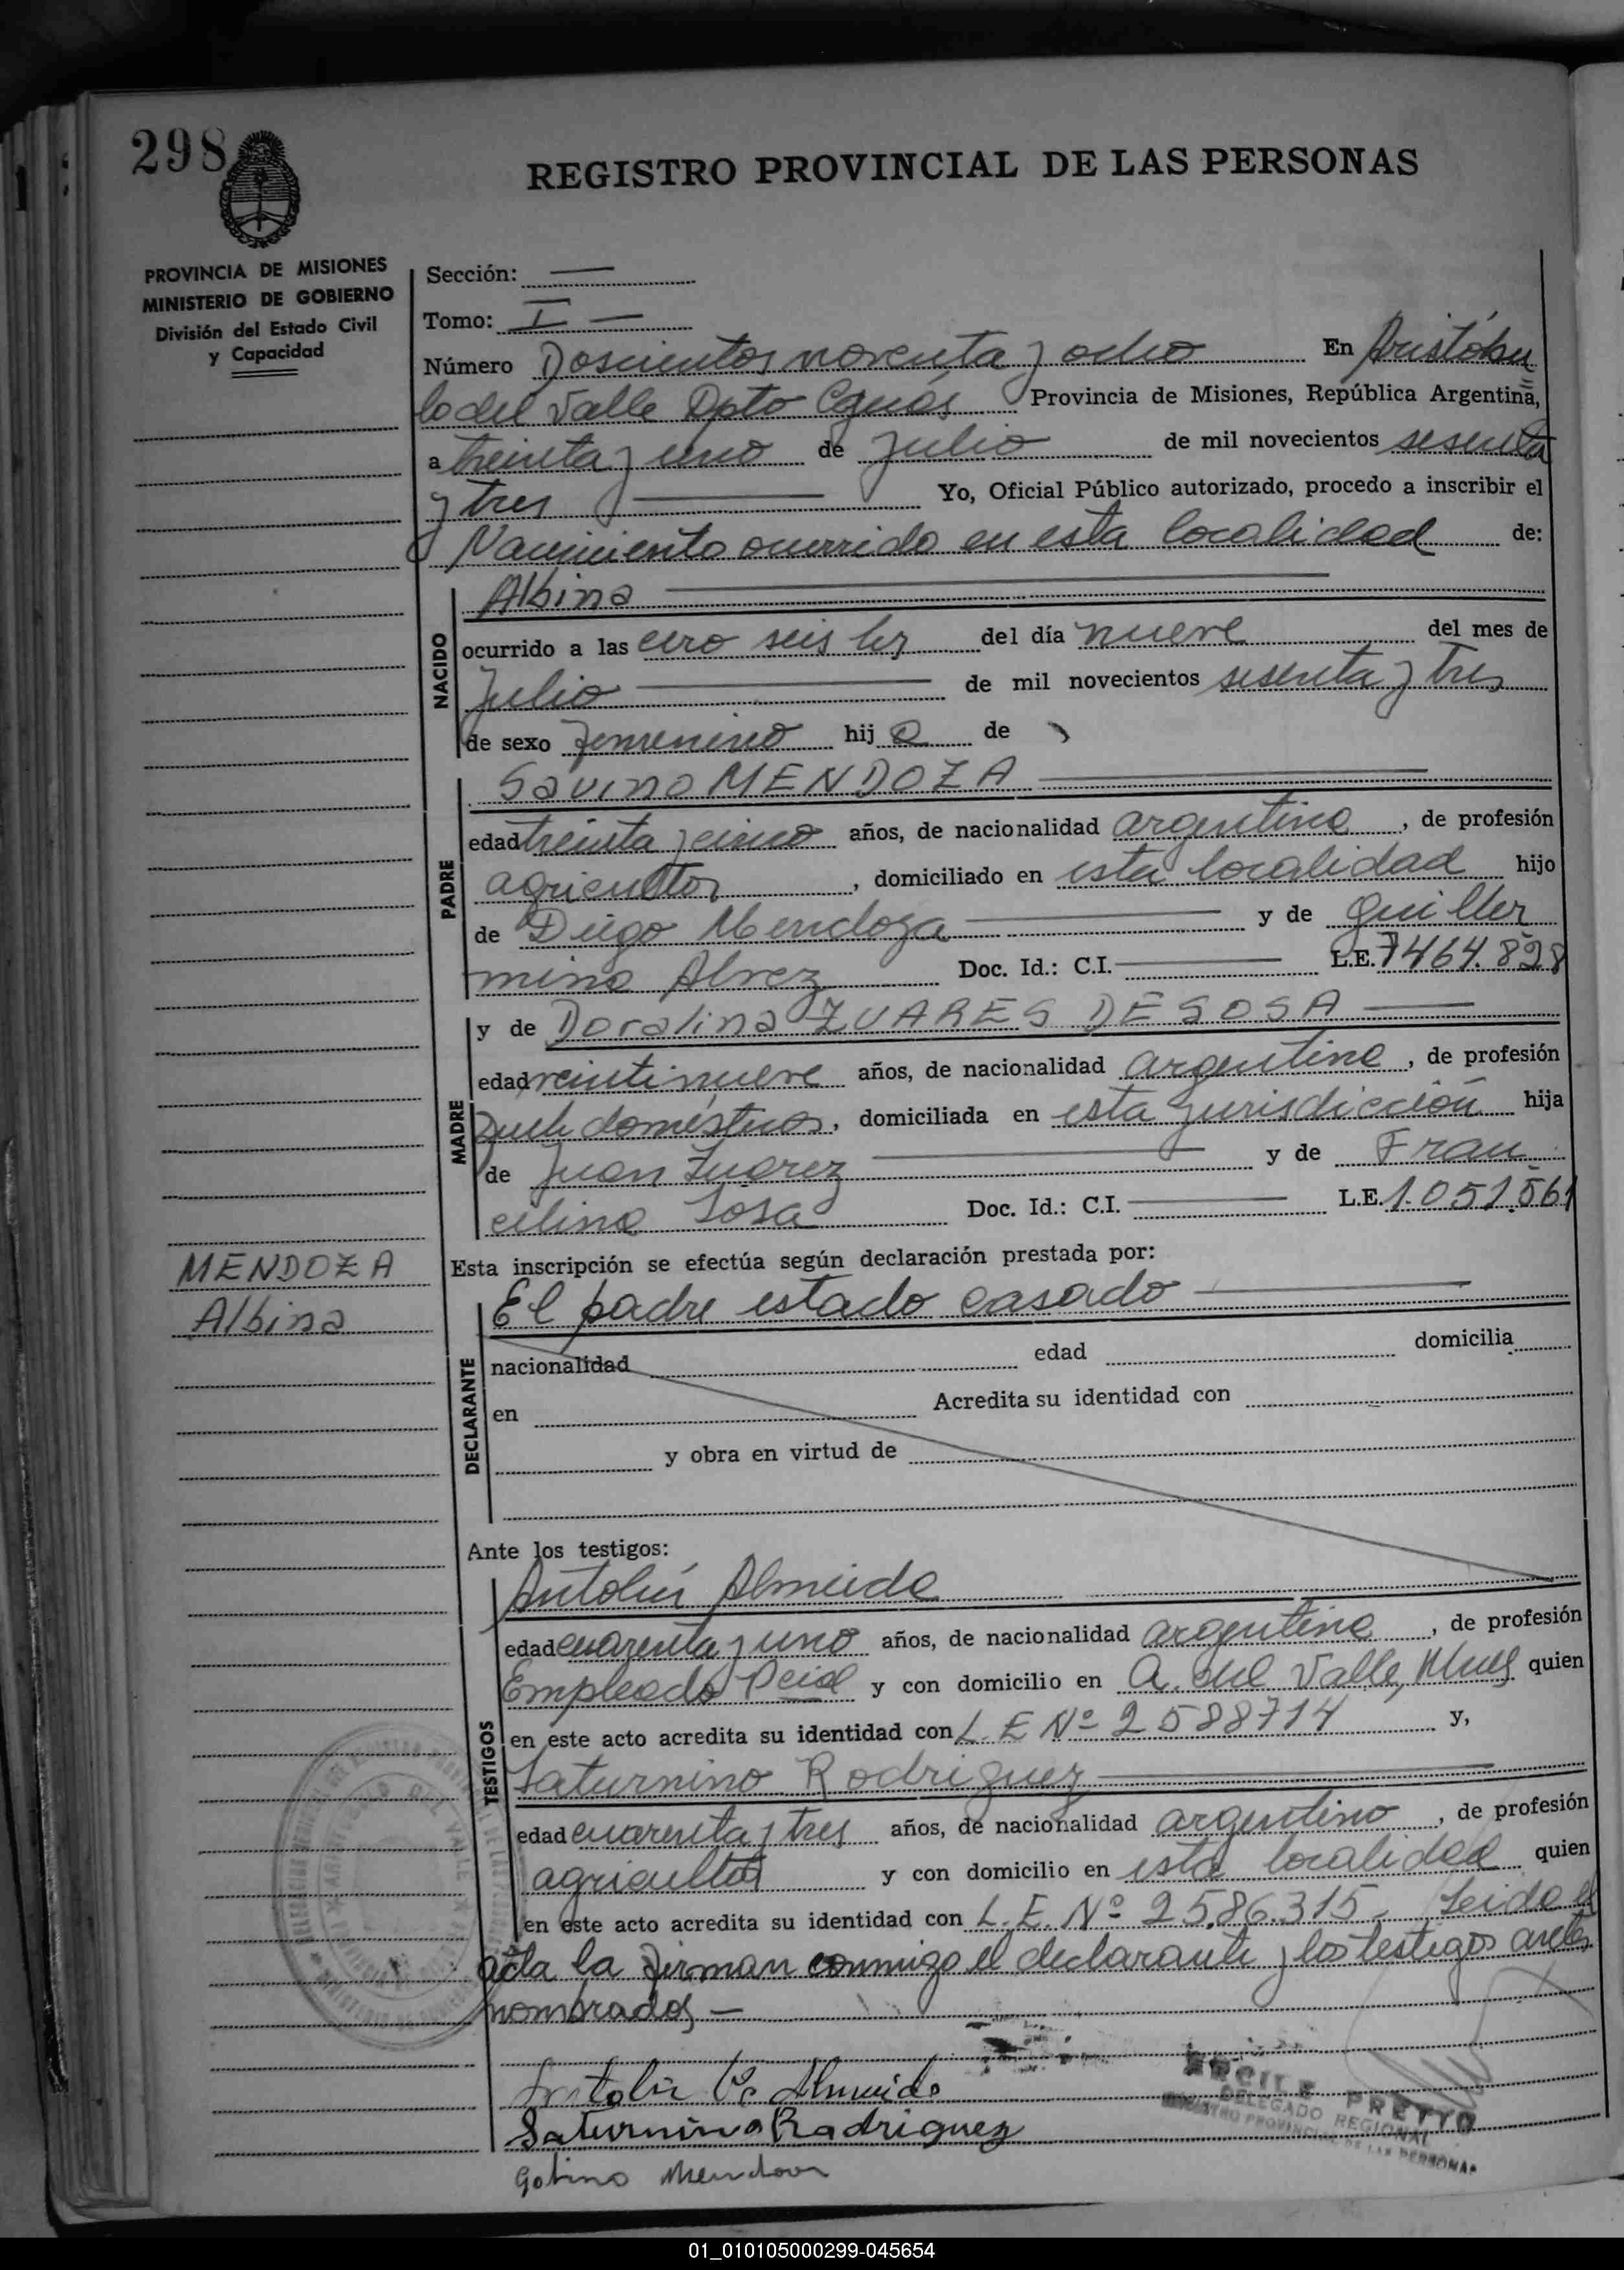 298
REGISTRO PROVINCIAL DE LAS PERSONAS
PROVINCIA DE MISIONES
MINISTERIO DE GOBIERNO
División del Estado Civil
y Capacidad
Sección:
Tomo: I
Número Doscientos noventa y ocho En Aristóbu
lo del Valle Dpto Cguás Provincia de Misiones, República Argentina,
a treinta y uno de Julio de mil novecientos sesenta
y tres Yo, Oficial Público autorizado, procedo a inscribir el
Nacimiento ocurrido en esta localidad de:
NACIDO
Albina
ocurrido a las cero seis hs del día nueve del mes de
Julio de mil novecientos sesenta y tres
de sexo femenino hij a de
PADRE
Savino MENDOZA
edad treinta y cinco años, de nacionalidad argentina, de profesión
agricultor, domiciliado en esta localidad hijo
de Diego Mendoza y de Guiller
mina Alvez Doc. Id.: C.I. L.E. 7464.828
MADRE
y de Doralina ZUARES DE SOSA
edad veintinueve años, de nacionalidad argentina, de profesión
domésticos, domiciliada en esta jurisdicción hija
de Juan Zuarez y de Fran
cilina Sosa Doc. Id.: C.I. L.E. 1.051.561
MENDOZA
Albina
Esta inscripción se efectúa según declaración prestada por:
DECLARANTE
El padre estado casado
nacionalidad edad domicilia
en Acredita su identidad con
y obra en virtud de
Ante los testigos:
TESTIGOS
Antolín Almeida
edad cuarenta y uno años, de nacionalidad argentina, de profesión
Empleado Pcial y con domicilio en A. del Valle, Mnes quien
en este acto acredita su identidad con L. E Nº 2588714 y,
Saturnino Rodriguez
edad cuarenta y tres años, de nacionalidad argentino, de profesión
agricultor y con domicilio en esta localidad quien
en este acto acredita su identidad con L.E. Nº 2586.315. Leida el
acta la firman conmigo el declarante y los testigos antes
nombrados —
Almeida
Saturnino Rodriguez
Mendoza
PRETTO
DELEGADO REGIONAL
REGISTRO PROVINCIAL DE LAS PERSONAS
01_010105000299-045654